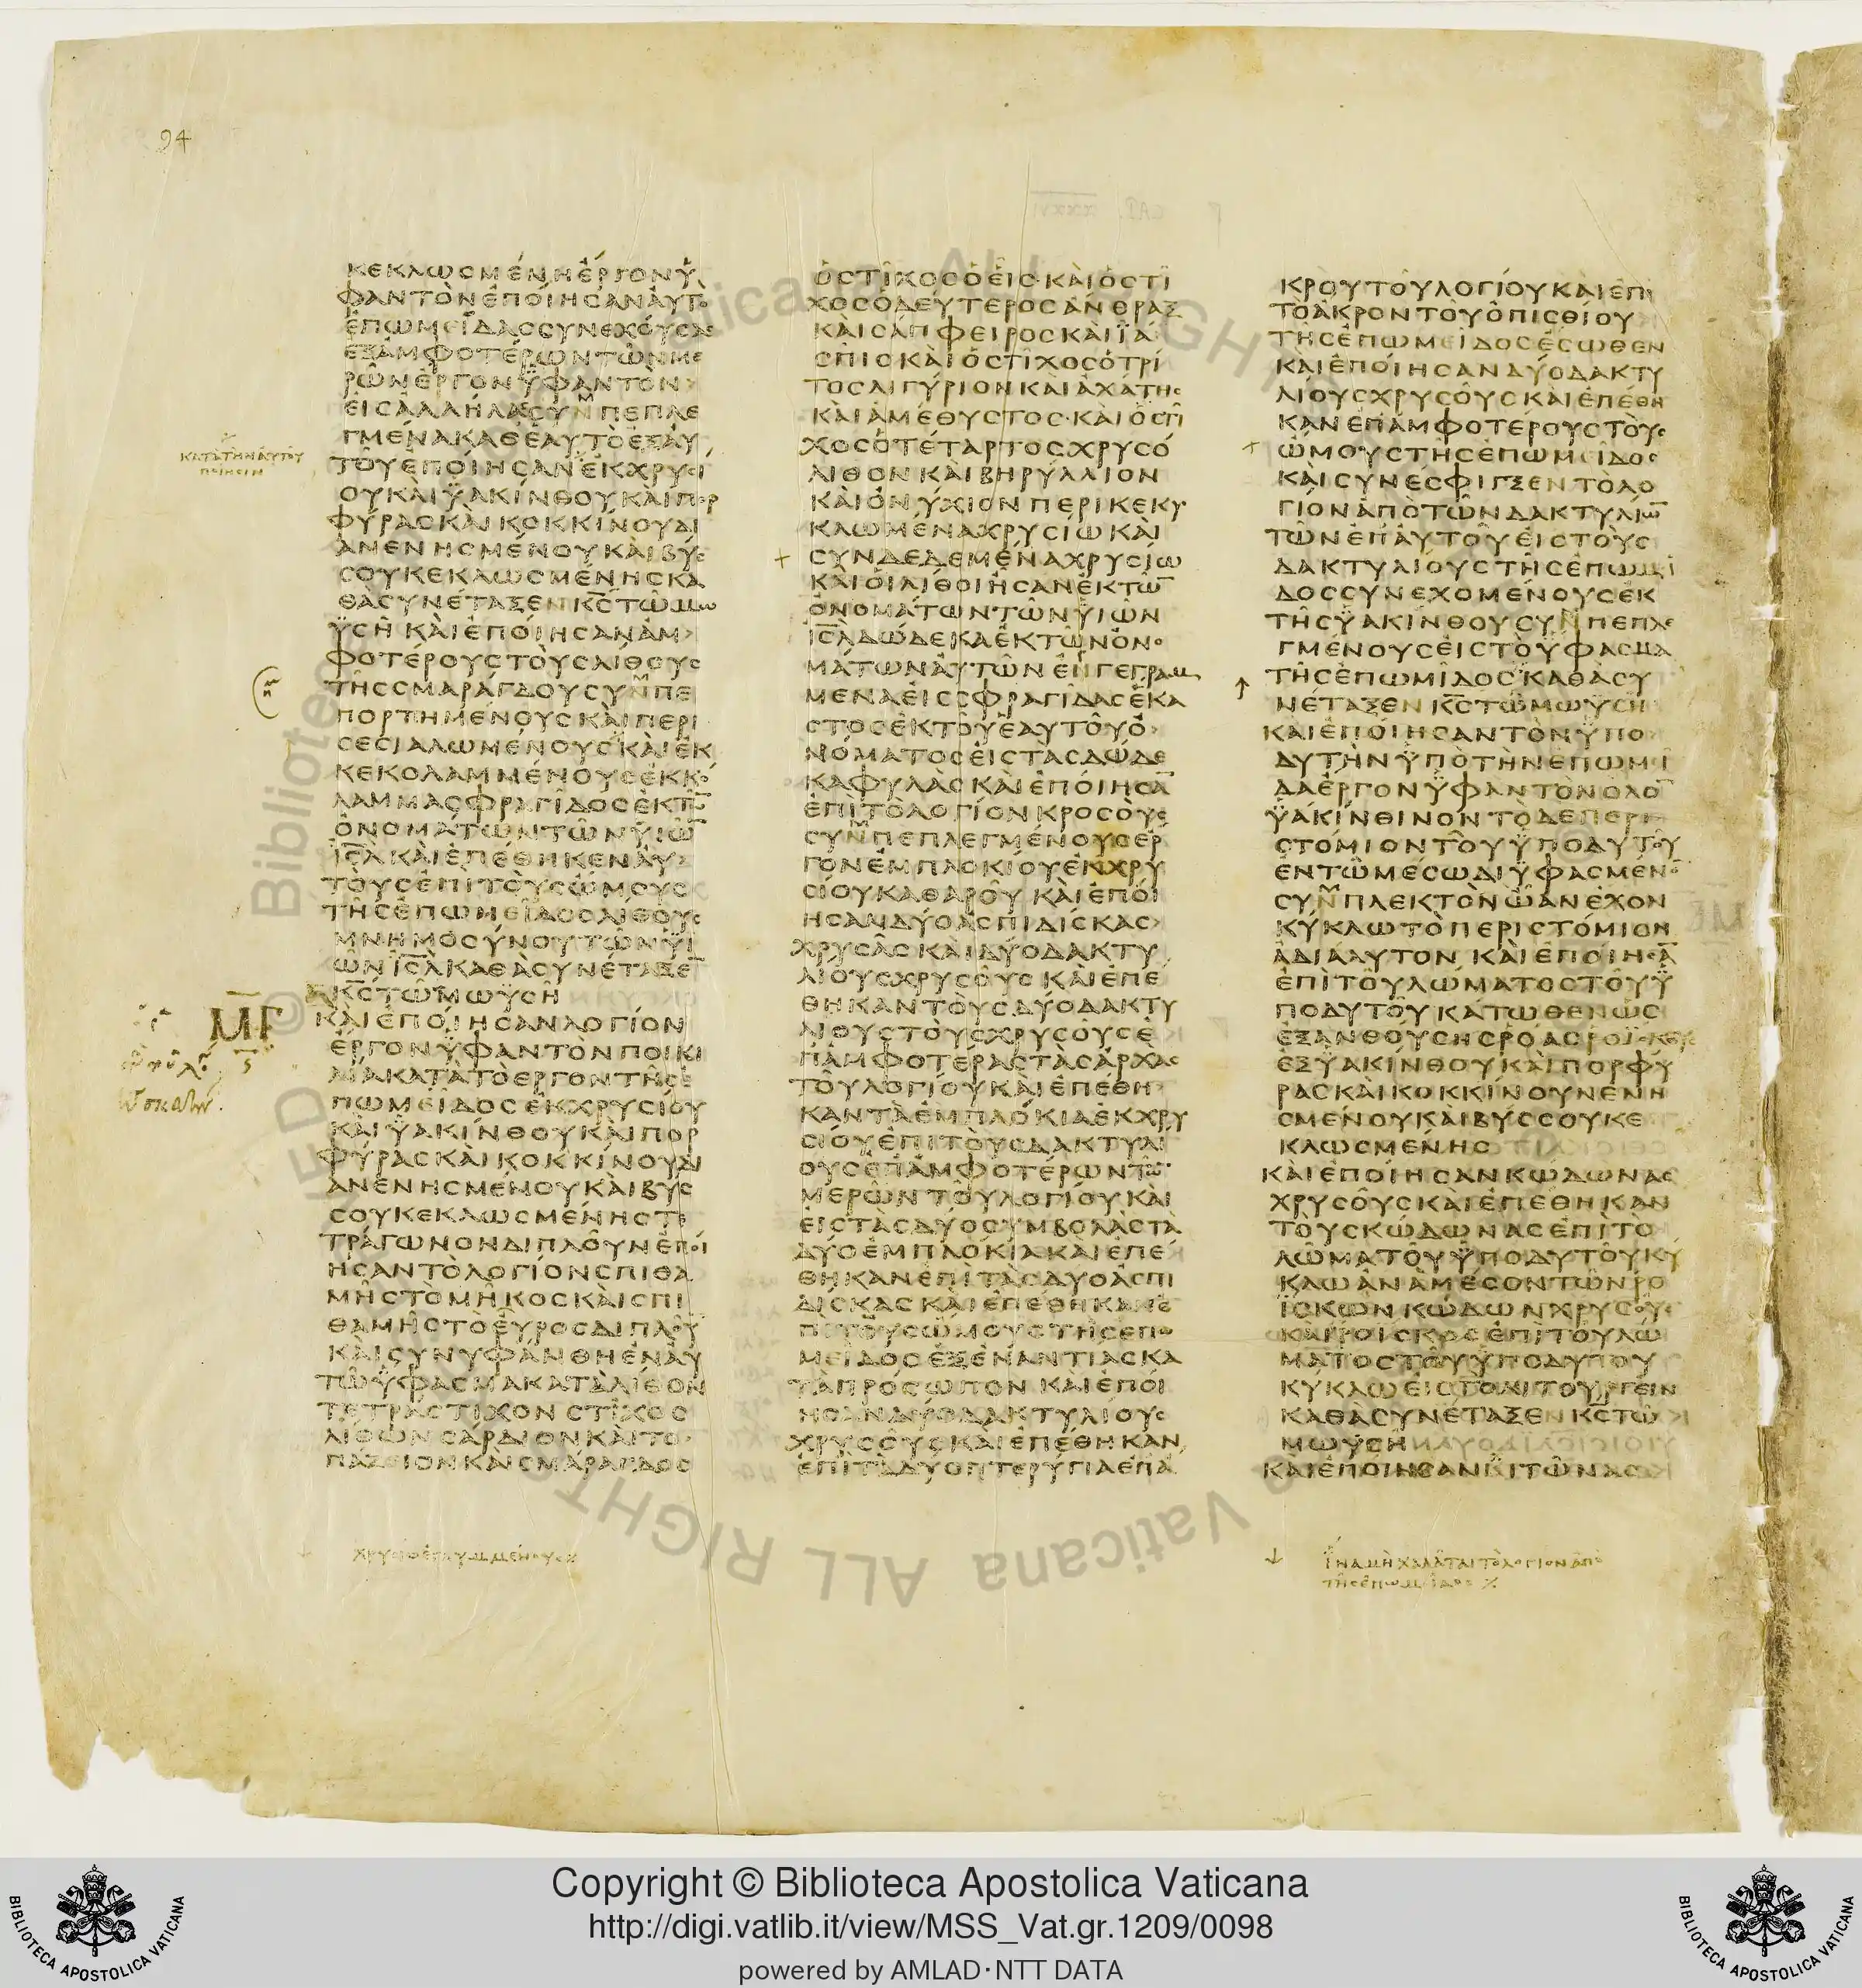 94
ΚΕΚΛΩΣΜΈΝΗ ἘΡΓΟΝ Ὑ
ΦΑΝΤῸΝ ἘΠΟΊΗΣΑΝ ἈΥΤῸ
ἘΠΩΜΕΙΔΑΣ ΣΥΝΕΧΟΎΣΑΣ
ἘΞ ἈΜΦΟΤΈΡΩΝ ΤῶΝ ΜΕ
ΡῶΝ ἘΡΓΟΝ ὙΦΑΝΤῸΝ
ἘΙΣ ἈΛΛΗΛΑΣ ΣΥΝΠΕΠΛΕ
ΓΜΕΝΑ ΚΑΘ ἙΑΥΤῸ ἘΞ ἈΥ
ΤΟΥ ἘΠΟΊΗΣΑΝ ἘΚ ΧΡΥΣΙ
ΟΥ ΚΑῚ ὙΑΚΊΝΘΟΥ ΚΑῚ ΠΟΡ
ΦΎΡΑΣ ΚΑῚ ΚΟΚΚΊΝΟΥ ΔΙ
ΑΝΕΝΗΣΜΈΝΟΥ ΚΑῚ ΒΎΣ
ΣΟΥ ΚΕΚΛΩΣΜΈΝΗΣ ΚΑ
ΘᾺ ΣΥΝΈΤΑΞΕΝ Κ̅Σ̅ ΤΩ ΜΩ
ΥΣΗ ΚΑῚ ἘΠΟΊΗΣΑΝ ἈΜ
ΦΟΤΈΡΟΥΣ ΤΟῪΣ ΛΊΘΟΥΣ
ΤΗΣ ΣΜΑΡΆΓΔΟΥ ΣΥΝΠΕ
ΠΟΡΤΗΜΈΝΟΥΣ ΚΑῚ ΠΕΡΙ
ΣΕΣΙΑΛΩΜΈΝΟΥΣ ΚΑῚ ἘΚ
ΚΕΚΟΛΑΜΜΈΝΟΥΣ ἘΚΚΟ
ΛΑΜΜΑ ΣΦΡΑΓΙΔΟΣ ἘΚ ΤΩ̅
ὈΝΟΜΆΤΩΝ ΤΩΝ ὙΙΩ̅
Ι̅Σ̅Λ̅ ΚΑῚ ἘΠΈΘΗΚΕΝ ἈΥ
ΤΟῪΣ ἘΠῚ ΤΟῪΣ ὨΜΟΥΣ
ΤΗΣ ἘΠΩΜΕΙΔΟΣ ΛΊΘΟΥΣ
ΜΝΗΜΟΣΎΝΟΥ ΤΩΝ ὙΙ
ΩΝ Ι̅Σ̅Λ̅ ΚΑΘᾺ ΣΥΝΈΤΑΞΕ̅
Κ̅Σ̅ ΤΩ ΜΩΥΣΗ
ΚΑῚ ἘΠΟΊΗΣΑΝ ΛΟΓΊΟΝ
ἘΡΓΟΝ ὙΦΑΝΤῸΝ ΠΟΙΚΙ
ΛΙΑ ΚΑΤΑ ΤῸ ἘΡΓΟΝ ΤΗΣ Ἐ
ΠΩΜΕΙΔΟΣ ἘΚ ΧΡΥΣΙΟΥ
ΚΑῚ ὙΑΚΊΝΘΟΥ ΚΑῚ ΠΟΡ
ΦΎΡΑΣ ΚΑῚ ΚΟΚΚΊΝΟΥ ΔΙ
ΑΝΕΝΗΣΜΈΝΟΥ ΚΑῚ ΒΎΣ
ΣΟΥ ΚΕΚΛΩΣΜΈΝΗΣ ΤΕ
ΤΡΆΓΩΝΟΝ ΔΙΠΛΟΥΝ ἘΠΟΊ
ΗΣΑΝ ΤῸ ΛΟΓΊΟΝ ΣΠΙΘΑ
ΜΗΣ ΤΟ ΜΗΚΟΣ ΚΑῚ ΣΠΙ
ΘΑΜΗΣ ΤΟ ΕΥΡΟΣ ΔΙΠΛΟΥ
ΚΑῚ ΣΥΝΥΦΆΝΘΗ ἘΝ ἈΥ
ΤΩ ὙΦΑΣΜΑ ΚΑΤΆΛΙΘΟΝ
ΤΕΤΡΆΣΤΙΧΟΝ ΣΤΙΧΟΣ
ΛΙΘΩΝ ΣΆΡΔΙΟΝ ΚΑῚ ΤΟ
ΠΆΖΙΟΝ ΚΑῚ ΣΜΆΡΑΓΔΟΣ
ΚΑΤΑ ΤΗΝ ΑΥΤΟΥ
ΠΟΙΗΣΙΝ
Μ̅Γ̅
ὉΣΤΙΧΟΣ Ὁ ἙΙΣ ΚΑῚ Ὁ ΣΤΙ
ΧΟΣ Ὁ ΔΕΎΤΕΡΟΣ ἈΝΘΡΑΞ
ΚΑῚ ΣΆΠΦΕΙΡΟΣ ΚΑῚ ΙΑ
ΣΠΙΣ ΚΑῚ Ὁ ΣΤΙΧΟΣ Ὁ ΤΡΊ
ΤΟΣ ΛΙΓΎΡΙΟΝ ΚΑΙ ἈΧΆΤΗΣ
ΚΑῚ ἈΜΈΘΥΣΤΟΣ ΚΑῚ Ὁ ΣΤΙ
ΧΟΣ Ὁ ΤΈΤΑΡΤΟΣ ΧΡΥΣΌ
ΛΙΘΟΝ ΚΑῚ ΒΗΡΎΛΛΙΟΝ
ΚΑῚ ὈΝΎΧΙΟΝ ΠΕΡΙΚΕΚΥ
ΚΛΩΜΕΝΑ ΧΡΥΣΊΩ ΚΑῚ
ΣΥΝΔΕΔΕΜΈΝΑ ΧΡΥΣΊΩ
ΚΑῚ ὉΙ ΛΊΘΟΙ ἨΣΑΝ ἘΚ ΤΩ̅
ὈΝΟΜΆΤΩΝ ΤΩΝ ὙΙΩΝ
Ι̅Σ̅Λ̅ ΔΏΔΕΚΑ ἘΚ ΤΩΝ ὈΝΟ
ΜΆΤΩΝ ΑΥΤΩΝ ἘΝΓΕΓΡΑΜ
ΜΕΝΑ ἘΙΣ ΣΦΡΑΓΙΔΑΣ ἘΚΑ
ΣΤΟΣ ἘΚ ΤΟΥ ἙΑΥΤΟΥ Ὀ
ΝΌΜΑΤΟΣ ἘΙΣ ΤΑΣ ΔΏΔΕ
ΚΑ ΦΥΛΑΣ ΚΑῚ ἘΠΟΊΗΣΑ̅
ἘΠῚ ΤῸ ΛΟΓΊΟΝ ΚΡΟΣΟῪΣ
ΣΥΝΠΕΠΛΕΓΜΈΝΟΥΣ ἘΡ
ΓΟΝ ἘΜΠΛΟΚΙΟΥ ἘΚ ΧΡΥ
ΣΊΟΥ ΚΑΘΑΡΟΥ ΚΑῚ ἘΠΟΊ
ΗΣΑΝ ΔΎΟ ἈΣΠΙΔΊΣΚΑΣ
ΧΡΥΣΑΣ ΚΑῚ ΔΎΟ ΔΑΚΤΥ
ΛΙΟΥΣ ΧΡΥΣΟΥΣ ΚΑῚ ἘΠΕ
ΘΗΚΑΝ ΤΟῪΣ ΔΎΟ ΔΑΚΤΥ
ΛΙΟΥΣ ΤΟῪΣ ΧΡΥΣΟΥΣ Ἐ
Π ἈΜΦΟΤΕΡΑΣ ΤΑΣ ἈΡΧΑΣ
ΤΟΥ ΛΟΓΙΟΥ ΚΑῚ ἘΠΈΘΗ
ΚΑΝ ΤᾺ ἘΜΠΛΌΚΙΑ ἘΚ ΧΡΥ
ΣΊΟΥ ἘΠῚ ΤΟῪΣ ΔΑΚΤΥΛΙ
ΟΥΣ ἘΠ ἈΜΦΟΤΈΡΩΝ ΤΩ̅
ΜΕΡΩΝ ΤΟΥ ΛΟΓΊΟΥ ΚΑῚ
ΕΙΣ ΤᾺΣ ΔΎΟ ΣΥΜΒΟΛᾺΣ ΤᾺ
ΔΎΟ ἘΜΠΛΌΚΙΑ ΚΑῚ ἘΠΈ
ΘΗΚΑΝ ἘΠῚ ΤᾺΣ ΔΎΟ ἈΣΠΙ
ΔΊΣΚΑΣ ΚΑῚ ἘΠΈΘΗΚΑΝ Ἐ
ΠῚ ΤΟῪΣ ὨΜΟΥΣ ΤΗΣ ἘΠΩ
ΜΕΙΔΟΣ ἘΞ ἘΝΑΝΤΙΑΣ ΚΑ
ΤᾺ ΠΡΌΣΩΠΟΝ ΚΑῚ ἘΠΟΊ
ΗΣΑΝ ΔΎΟ ΔΑΚΤΥΛΙΟΥΣ
ΧΡΥΣΟΥΣ ΚΑῚ ἘΠΈΘΗΚΑΝ
ἘΠῚ ΤᾺ ΔΎΟ ΠΤΕΡΎΓΙΑ ἘΠ Ἀ
ΚΡΟΥ ΤΟΥ ΛΟΓΊΟΥ ΚΑῚ ἘΠῚ
ΤῸ ἈΚΡΟΝ ΤΟΥ ὈΠΙΣΘΊΟΥ
ΤΗΣ ἘΠΩΜΕΙΔΟΣ ἘΣΩΘΕΝ
ΚΑῚ ἘΠΟΊΗΣΑΝ ΔΎΟ ΔΑΚΤΥ
ΛΊΟΥΣ ΧΡΥΣΟΥΣ ΚΑῚ ἘΠΈΘΗ
ΚΑΝ ἘΠ ἈΜΦΟΤΈΡΟΥΣ ΤΟῪΣ
ὨΜΟΥΣ ΤΗΣ ἘΠΩΜΕΙΔΟΣ
ΚΑῚ ΣΥΝΈΣΦΙΓΞΕΝ ΤῸ ΛΟ
ΓΙΟΝ ἈΠῸ ΤΩΝ ΔΑΚΤΥΛΙΩ̅
ΤΩΝ ἘΠ ἈΥΤΟΥ ἘΙΣ ΤΟῪΣ
ΔΑΚΤΥΛΙΟΥΣ ΤΗΣ ἘΠΩΜΙ
ΔΟΣ ΣΥΝΕΧΟΜΈΝΟΥΣ ἘΚ
ΤΗΣ ὙΑΚΊΝΘΟΥ ΣΥΝΠΕΠΛΕ
ΓΜΈΝΟΥΣ ἘΙΣ ΤῸ ὙΦΑΣΜΑ
ΤΗΣ ἘΠΩΜΙΔΟΣ ΚΑΘᾺ ΣΥ
ΝΈΤΑΞΕΝ Κ̅Σ̅ ΤΩ ΜΩΥΣΗ
ΚΑῚ ἘΠΟΊΗΣΑΝ ΤῸΝ ὙΠΟ
ΔΥΤΗΝ ὙΠῸ ΤῊΝ ἘΠΩΜΙ
ΔΑ ἘΡΓΟΝ ὙΦΑΝΤῸΝ ὉΛΟ̅
ὙΑΚΊΝΘΙΝΟΝ ΤῸ ΔΕ ΠΕΡΙ
ΣΤΟΜΙΟΝ ΤΟΥ ὙΠΟΔΥΤΟΥ
ἘΝ ΤΩ ΜΕΣΩ ΔΙΥΦΑΣΜΕΝΟ̅
ΣΥΜΠΛΕΚΤῸΝ ὨΑΝ ἘΧΟΝ
ΚΎΚΛΩ ΤῸ ΠΕΡΙΣΤΌΜΙΟΝ
ἈΔΙΆΛΥΤΟΝ ΚΑῚ ἘΠΟΊΗΣΑ̅
ἘΠῚ ΤΟΥ ΛΩΜΑΤΟΣ ΤΟΥ Ὑ
ΠΟΔΥΤΟΥ ΚΆΤΩΘΕΝ ὩΣ
ἘΞΑΝΘΟΎΣΗΣ ΡΌΑΣ ΡΟΙΣΚΟΥΣ
ἘΞ ὙΑΚΊΝΘΟΥ ΚΑῚ ΠΟΡΦΎ
ΡΑΣ ΚΑῚ ΚΟΚΚΙΝΟΥ ΝΕΝΗ
ΣΜΈΝΟΥ ΚΑῚ ΒΎΣΣΟΥ ΚΕ
ΚΛΩΣΜΈΝΗΣ
ΚΑῚ ἘΠΟΊΗΣΑΝ ΚΏΔΩΝΑΣ
ΧΡΥΣΟΥΣ ΚΑῚ ἘΠΈΘΗΚΑΝ
ΤΟῪΣ ΚΏΔΩΝΑΣ ἘΠῚ ΤΟ
ΛΩΜΑ ΤΟΥ ὙΠΟΔΥΤΟΥ ΚΎ
ΚΛΩ ἈΝᾺ ΜΈΣΟΝ ΤΩΝ ΡΟ
ΙΣΚΩΝ ΚΏΔΩΝ ΧΡΥΣΟΥΣ
ΚΑῚ ΡΟΙΣΚΟΣ ἘΠῚ ΤΟΥ ΛΩ
ΜΑΤΟΣ ΤΟΥ ὙΠΟΔΥΤΟΥ
ΚΥΚΛΩ ἘΙΣ ΤῸ ΛΙΤΟΥΡΓΕΙΝ
ΚΑΘᾺ ΣΥΝΈΤΑΞΕΝ Κ̅Σ̅ ΤΩ
ΜΩΥΣΗ
ΚΑῚ ἘΠΟΊΗΣΑΝ ΧΙΤΩΝΑΣ
ἹΝΑ ΜΗ ΧΑΛΑΤΑΙ ΤῸ ΛΟΓΙΟΝ ἈΠῸ
ΤΗΣ ἘΠΩΜΙΔΟΣ
Copyright © Biblioteca Apostolica Vaticana
http://digi.vatlib.it/view/MSS_Vat.gr.1209/0098
powered by AMLAD·NTT DATA
BIBLIOTECA APOSTOLICA VATICANA
BIBLIOTECA APOSTOLICA VATICANA